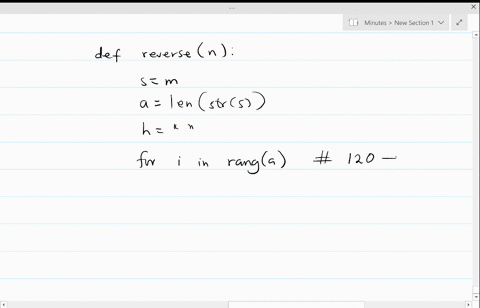 Minutes > New Section 1
def reverse(n):
s=m
a=len(str(s))
h=" "
for i in rang(a) # 120 —